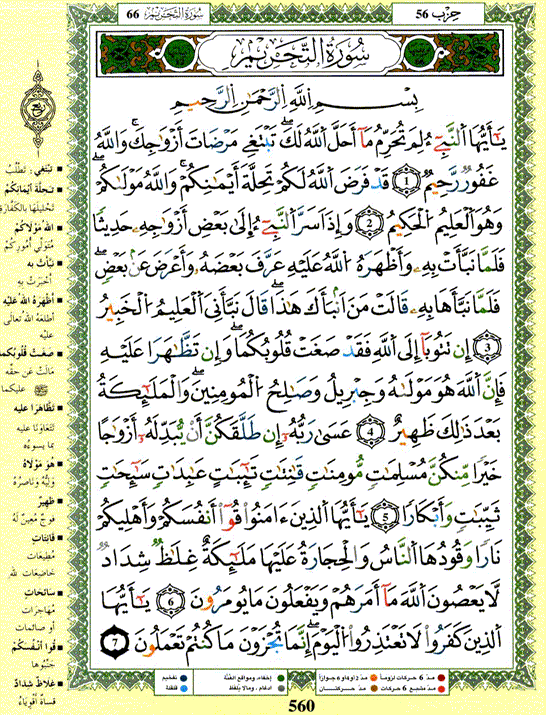 حزب 56
سُورَةُ التَّحْرِيمِ 66
سُورَةُ التَّحْرِيمِ
بِسْمِ اِللَّهِ اِلرَّحْمَٰنِ اِلرَّحِيمِ
يَٰٓأَيُّهَا اَلنَّبِےٓءُ لِمَ تُحَرِّمُ مَآ أَحَلَّ اَللَّهُ لَكَ تَبْتَغِے مَرْضَاتَ أَزْوَٰجِكَ وَاللَّهُ
غَفُورٞ رَّحِيمٞ (1) قَدْ فَرَضَ اَللَّهُ لَكُمْ تَحِلَّةَ أَيْمَٰنِكُمْ وَاللَّهُ مَوْلَيٰكُمْ
وَهُوَ اَلْعَلِيمُ اُلْحَكِيمُ (2) وَإِذَ اَسَرَّ اَلنَّبِےٓءُ اِلَىٰ بَعْضِ أَزْوَٰجِهِۦ حَدِيثاٗ
فَلَمَّا نَبَّأَتْ بِهِۦ وَأَظْهَرَهُ اُللَّهُ عَلَيْهِ عَرَّفَ بَعْضَهُۥ وَأَعْرَضَ عَنۢ بَعْضٖ
فَلَمَّا نَبَّأَهَا بِهِۦ قَالَتْ مَنَ اَنۢبَأَكَ هَٰذَا قَالَ نَبَّأَنِيَ اَلْعَلِيمُ اُلْخَبِيرُ
(3) إِن تَتُوبَآ إِلَى اَللَّهِ فَقَدْ صَغَتْ قُلُوبُكُمَا وَإِن تَظَّٰهَرَا عَلَيْهِ
فَإِنَّ اَللَّهَ هُوَ مَوْلَيٰهُ وَجِبْرِيلُ وَصَٰلِحُ اُلْمُومِنِينَ وَالْمَلَٰٓئِكَةُ
بَعْدَ ذَٰلِكَ ظَهِيرٌ (4) عَسَىٰ رَبُّهُۥٓ إِن طَلَّقَكُنَّ أَنْ يُّبَدِّلَهُۥٓ أَزْوَٰجاً
خَيْراٗ مِّنكُنَّ مُسْلِمَٰتٖ مُّومِنَٰتٖ قَٰنِتَٰتٖ تَٰٓئِبَٰتٍ عَٰبِدَٰتٖ سَٰٓئِحَٰتٖ
ثَيِّبَٰتٖ وَأَبْكَاراٗ (5) يَٰٓأَيُّهَا اَلذِينَ ءَامَنُواْ قُوٓاْ أَنفُسَكُمْ وَأَهْلِيكُمْ
نَاراٗ وَقُودُهَا اَلنَّاسُ وَالْحِجَارَةُ عَلَيْهَا مَلَٰٓئِكَةٌ غِلَٰظٞ شِدَادٞ
لَّا يَعْصُونَ اَللَّهَ مَآ أَمَرَهُمْ وَيَفْعَلُونَ مَا يُومَرُونَ (6) يَٰٓأَيُّهَا
اَلذِينَ كَفَرُواْ لَا تَعْتَذِرُواْ اُلْيَوْمَ إِنَّمَا تُجْزَوْنَ مَا كُنتُمْ تَعْمَلُونَ (7)
ربع
■ تَبْتَغِي: تَطْلُبُ
■ تَحِلَّةَ أَيْمَانِكُمْ
تَحْلِيلَهَا بِالْكَفَّارَةِ
■ اللهُ مَوْلَاكُمْ
مُتَوَلِّي أُمُورِكُمْ
■ نَبَّأَتْ بِهِ
أَخْبَرَتْ بِهِ
■ أَظْهَرَهُ اللهُ عَلَيْهِ
أَطْلَعَهُ اللهُ تَعَالَى
عَلَيْهِ
■ صَغَتْ قُلُوبُكُمَا
مَالَتْ عَنْ حَقِّهِ
ﷺ عَلَيْكُمَا
■ تَظَّاهَرَا عَلَيْهِ
تَتَعَاوَنَا عَلَيْهِ
بِمَا يَسُوءُهُ
■ هُوَ مَوْلَاهُ
وَلِيُّهُ وَنَاصِرُهُ
■ ظَهِيرٌ
فَوْجٌ مُعِينٌ لَهُ
■ قَانِتَاتٍ
مُطِيعَاتٍ
خَاضِعَاتٍ لِلّٰهِ
■ سَائِحَاتٍ
مُهَاجِرَاتٍ
أَوْ صَائِمَاتٍ
■ قُوا أَنْفُسَكُمْ
جَنِّبُوهَا
■ غِلَاظٌ شِدَادٌ
قُسَاةٌ أَقْوِيَاءُ
مدّ 6 حركات لزوماً مدّ 2 أو 4 أو 6 جوازاً إخفاء، ومواقع الغُنَّة تفخيم
مدّ مشبع 6 حركات مدّ حركتان ادغام، ومالا يلفظ قلقلة
560